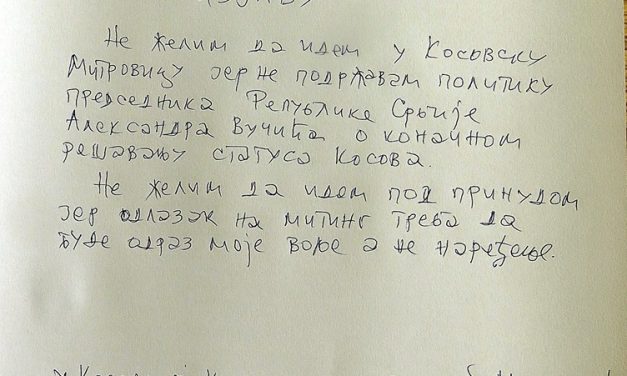 Не желим да идем у Косовску
Митровицу јер не подржавам политику
председника Републике Србије
Александра Вучића о коначном
решавању статуса Косова.
Не желим да идем под принудом
јер одлазак на митинг треба да
буде одраз моје воље а не наређење.